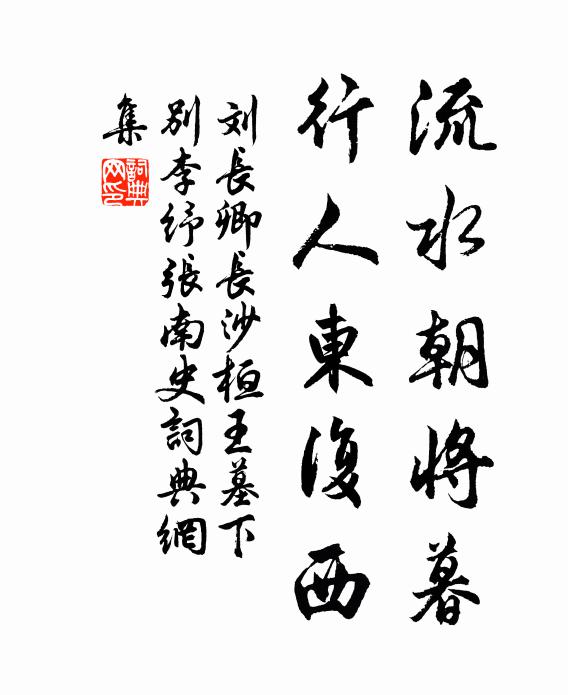 流水朝将暮
行人東復西
刘長卿長沙桓王墓下
别李纾張南史詞典網
集
詞典
网印